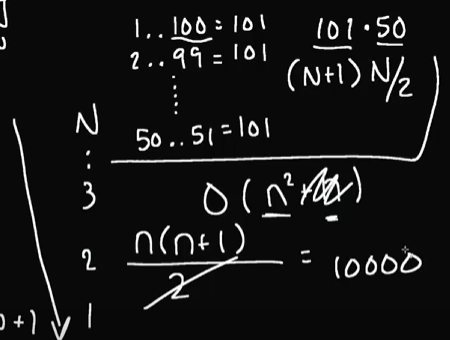 1..100=101
2..99=101
50..51=101
101·50
(N+1) N/2
N
3
2
1
O(n²+
n(n+1)
2
= 10000
+1